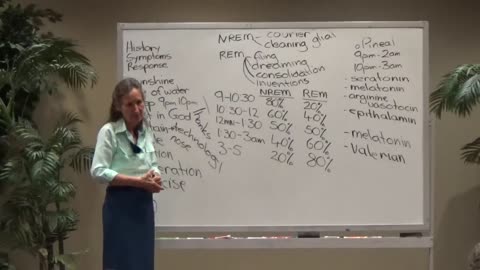 History
Symptoms
Response
sunshine
of water
9pm 10pm
in God
technology
nose
NREM - courier glial
cleaning
REM - filing
dreaming
consolidation
inventions
NREM REM
9-10:30 80% 20%
10:30-12 60% 40%
12mn-1:30 50% 50%
1:30-3am 40% 60%
3-5 20% 80%
Pineal
9pm-2am
10pm-3am
- seratonin
- melatonin
- arginine
- epithalamin
- melatonin
- Valerian